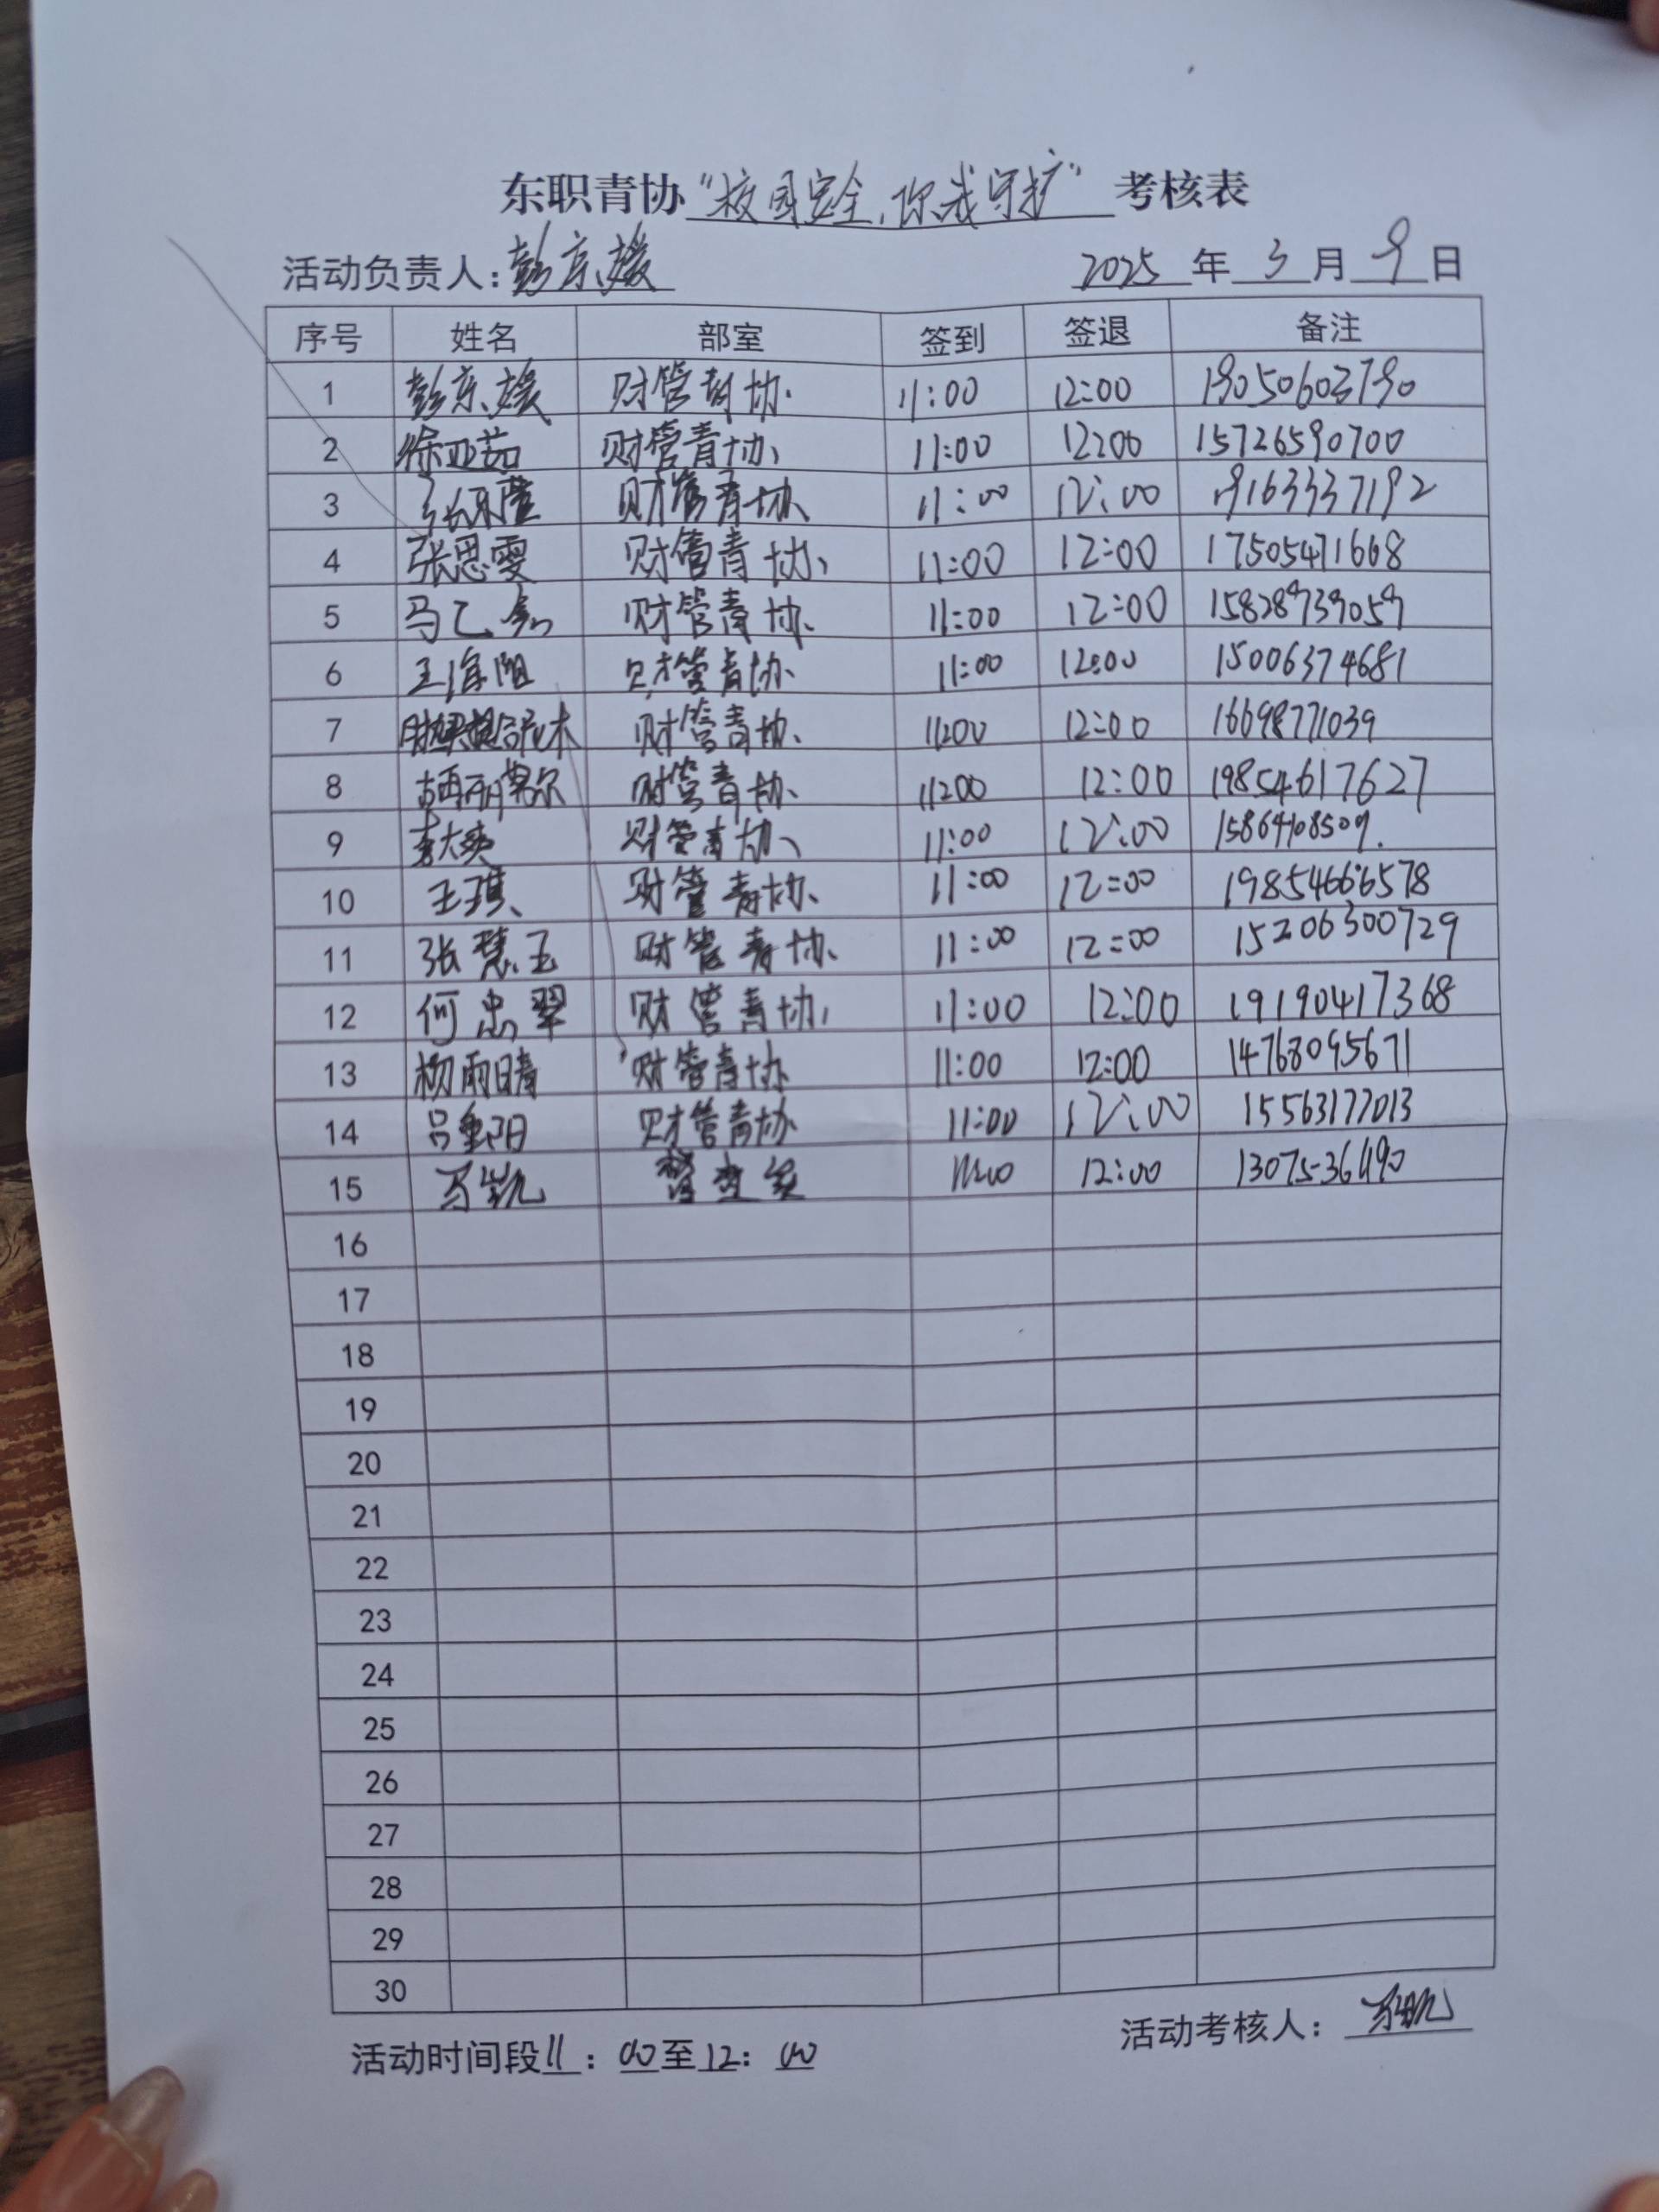 东职青协“校园安全，你我守护”考核表
活动负责人：彭京媛 2025年3月9日
序号 姓名 部室 签到 签退 备注
1 彭京媛 财管青协 11:00 12:00 19050603790
2 徐亚茹 财管青协 11:00 12:00 15726590700
3 财管青协 11:00 12:00 19163337192
4 张思雯 财管青协 11:00 12:00 17505471668
5 马乙 财管青协 11:00 12:00 15828939059
6 王 阳 财管青协 11:00 12:00 15006374681
7 财管青协 11:00 12:00 16698771039
8 财管青协 11:00 12:00 19854617627
9 李大爽 财管青协 11:00 12:00 15864108509
10 王琪 财管青协 11:00 12:00 19854666578
11 张慧玉 财管青协 11:00 12:00 15206300729
12 何忠翠 财管青协 11:00 12:00 19190417368
13 杨雨晴 财管青协 11:00 12:00 14768095671
14 吕重阳 财管青协 11:00 12:00 15563177013
15 万凯 督查室 11:00 12:00
16
17
18
19
20
21
22
23
24
25
26
27
28
29
30
活动时间段11：00至12：00 活动考核人：万凯